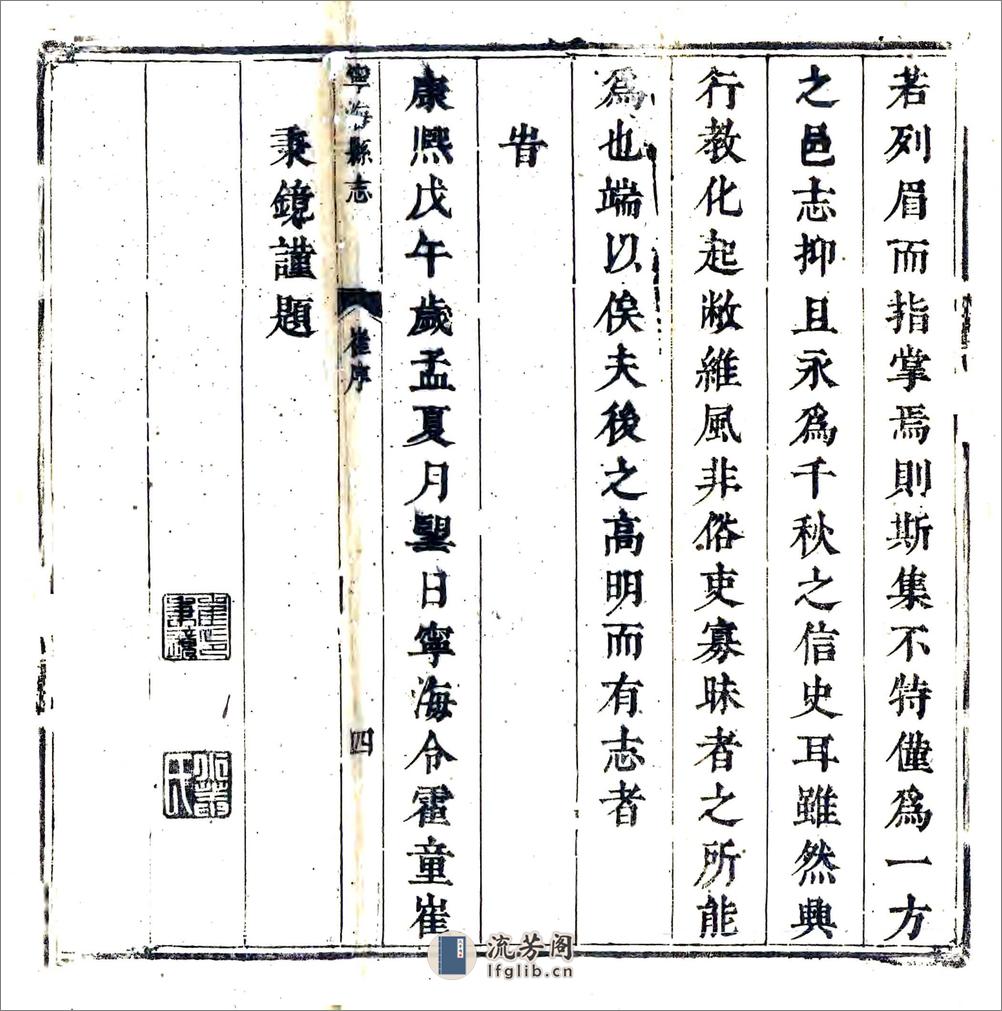 若列眉而指掌焉則斯集不特僅爲一方
之邑志抑且永爲千秋之信史耳雖然興
行教化起敝維風非俗吏寡昧者之所能
爲也端以俟夫後之高明而有志者
旹
康熙戊午歲孟夏月朢日寧海令霍童崔
寧海縣志 崔序 四
秉鏡謹題
崔印秉鏡
流芳阁
lfglib.cn